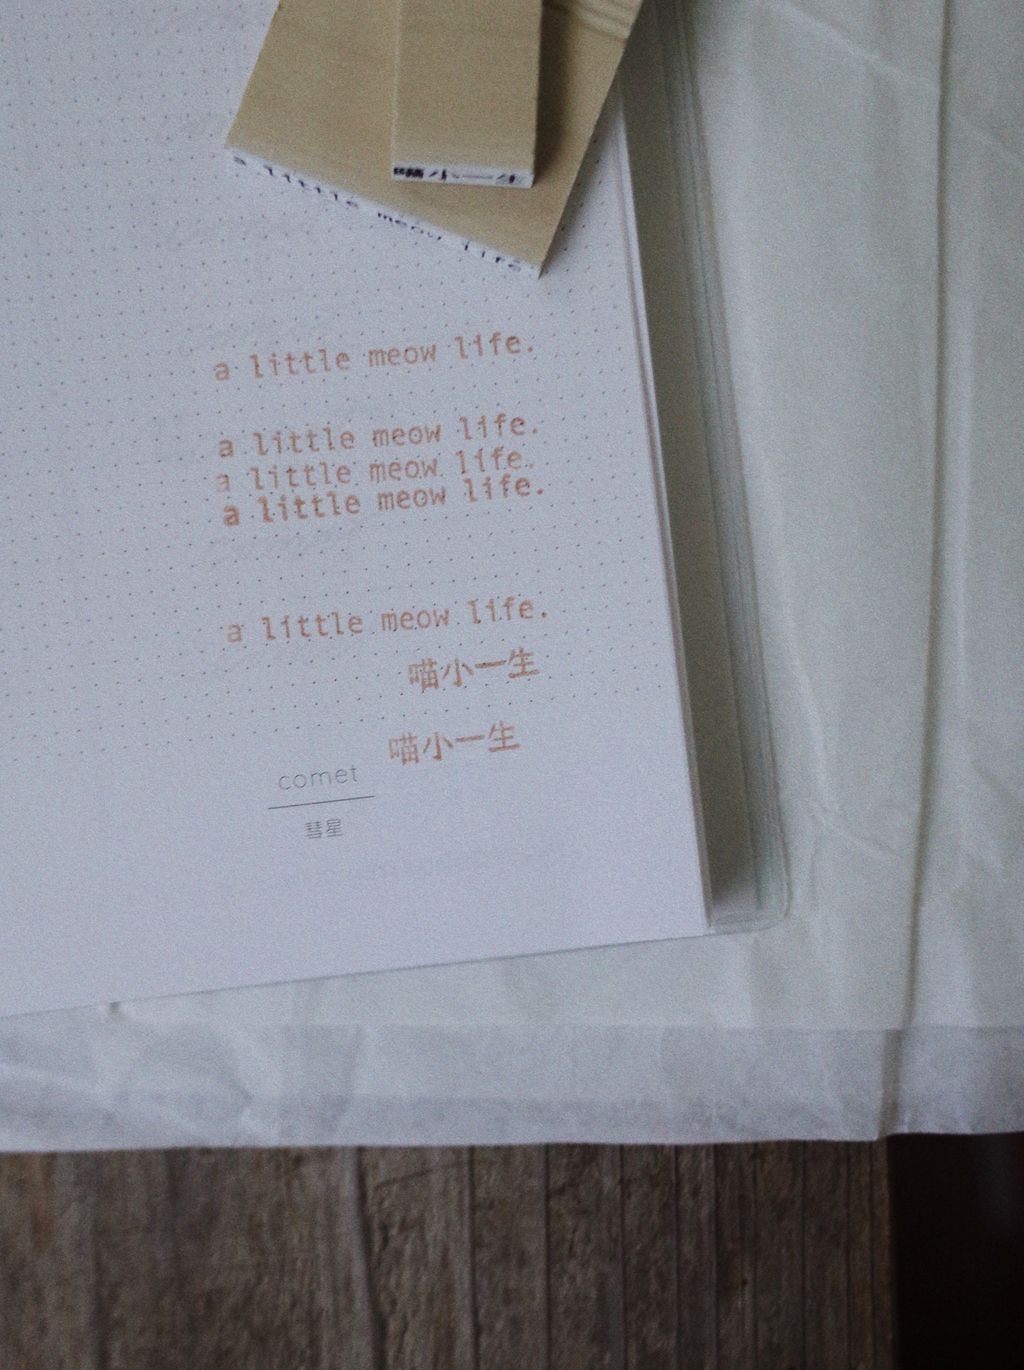 a little meow life.
a little meow life.
a little meow life.
a little meow life.
a little meow life.
a little meow life.
喵小一生
喵小一生
comet
彗星